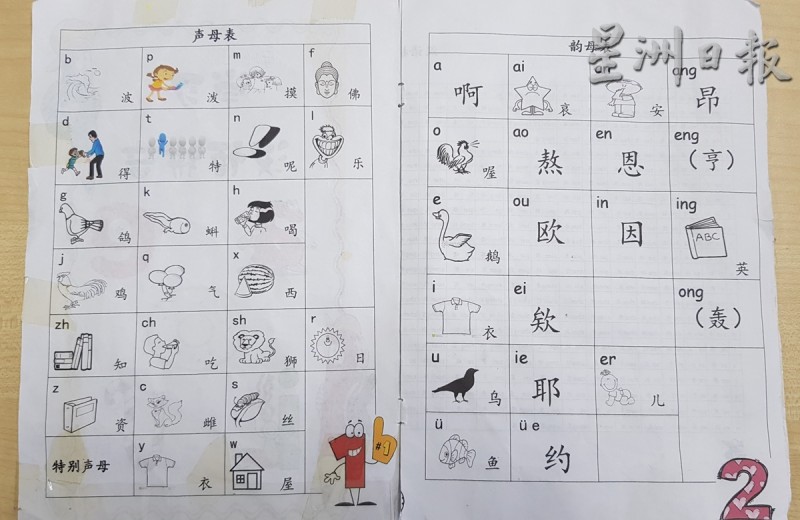 声母表
b p m f
波 泼 摸 佛
d t n l
得 特 呢 乐
g k h
鸽 蝌 喝
j q x
鸡 气 西
zh ch sh r
知 吃 狮 日
z c s
资 雌 丝
特别声母 y w
衣 屋
#1
1
星洲日報
韵母表
a ai ang
啊 哀 安 昂
o ao en eng
喔 熬 恩 （亨）
e ou in ing
鹅 欧 因 ABC 英
i ei ong
衣 欸 （轰）
u ie er
乌 耶 儿
ü üe
鱼 约
2